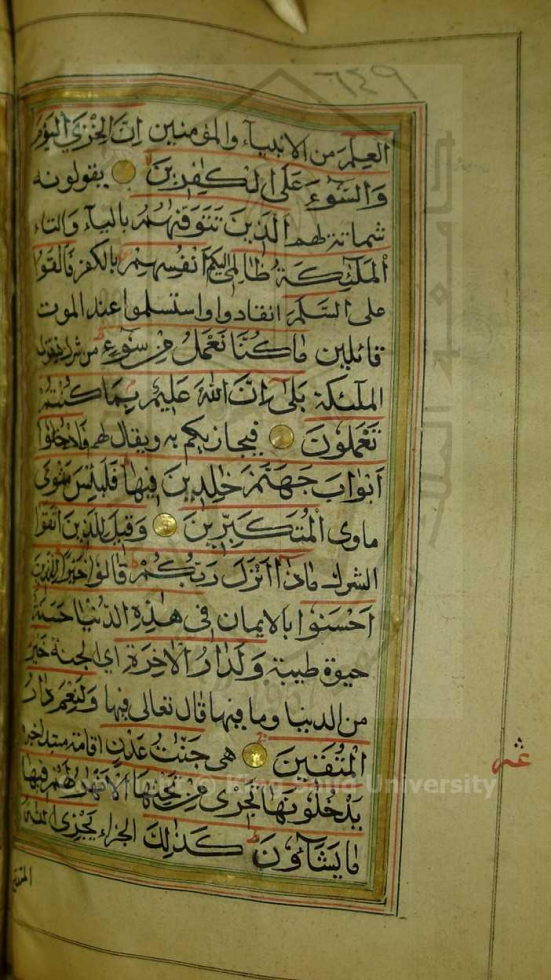 ٦٤٩
العِلمَ من الانبيآء والمؤمنين اِنَّ الْخِزْيَ الْيَوْمَ
وَالسُّوٓءَ عَلَى الْكٰفِرِينَ يقولونه
شماتة لهم الَّذِينَ تَتَوَفّٰىهُمُ بالياء والتاء
الْمَلٰٓئِكَةُ ظَالِمِىٓ اَنْفُسِهِمْ بالكفر فَاَلْقَوُا
السَّلَمَ انقادوا واستسلموا عند الموت
قائلين مَا كُنَّا نَعْمَلُ مِنْ سُوٓءٍ من شرك فتقول
الملٰئكة بَلٰىٓ اِنَّ اللّٰهَ عَلِيمٌ بِمَا كُنْتُمْ
تَعْمَلُونَ فيجازيكم به ويقال لهم فَادْخُلُوٓا
اَبْوَابَ جَهَنَّمَ خٰلِدِينَ فِيهَا فَلَبِئْسَ مَثْوَى
ماوى الْمُتَكَبِّرِينَ وَقِيلَ لِلَّذِينَ اتَّقَوْا
الشرك مَاذَآ اَنْزَلَ رَبُّكُمْ قَالُوا خَيْرًا لِلَّذِينَ
اَحْسَنُوا بالايمان فِى هٰذِهِ الدُّنْيَا حَسَنَةٌ
حيوة طيبة وَلَدَارُ الْاٰخِرَةِ اى الجنة خَيْرٌ
من الدنيا وما فيها قال تعالى فيها وَلَنِعْمَ دَارُ
الْمُتَّقِينَ هى جَنّٰتُ عَدْنٍ اقامة مبتدا خبره
يَدْخُلُونَهَا تَجْرِى مِنْ تَحْتِهَا الْاَنْهٰرُ لَهُمْ فِيهَا
مَا يَشَآؤُنَ كَذٰلِكَ الجزاء يَجْزِى اللّٰهُ
King Saud University